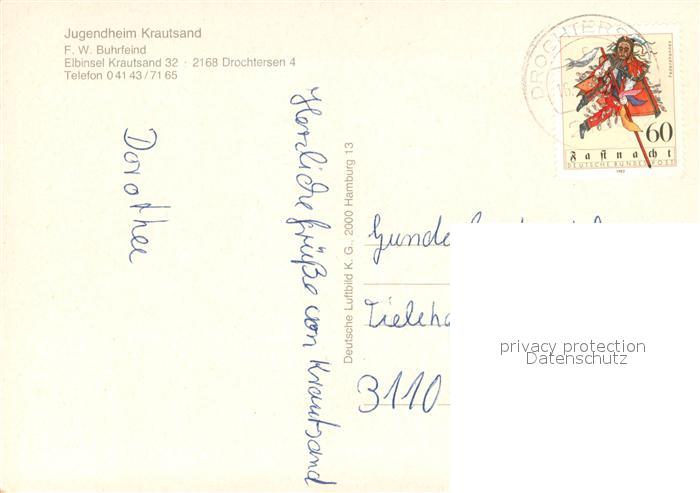 Jugendheim Krautsand
F. W. Buhrfeind
Elbinsel Krautsand 32 · 2168 Drochtersen 4
Telefon 0 41 43 / 71 65
Herzliche Grüße von Krautsand
Dorothee
Deutsche Luftbild K. G., 2000 Hamburg 13
DROCHTERS
60
Fastnacht
DEUTSCHE BUNDESPOST
1983
Gunde
3110
privacy protection
Datenschutz